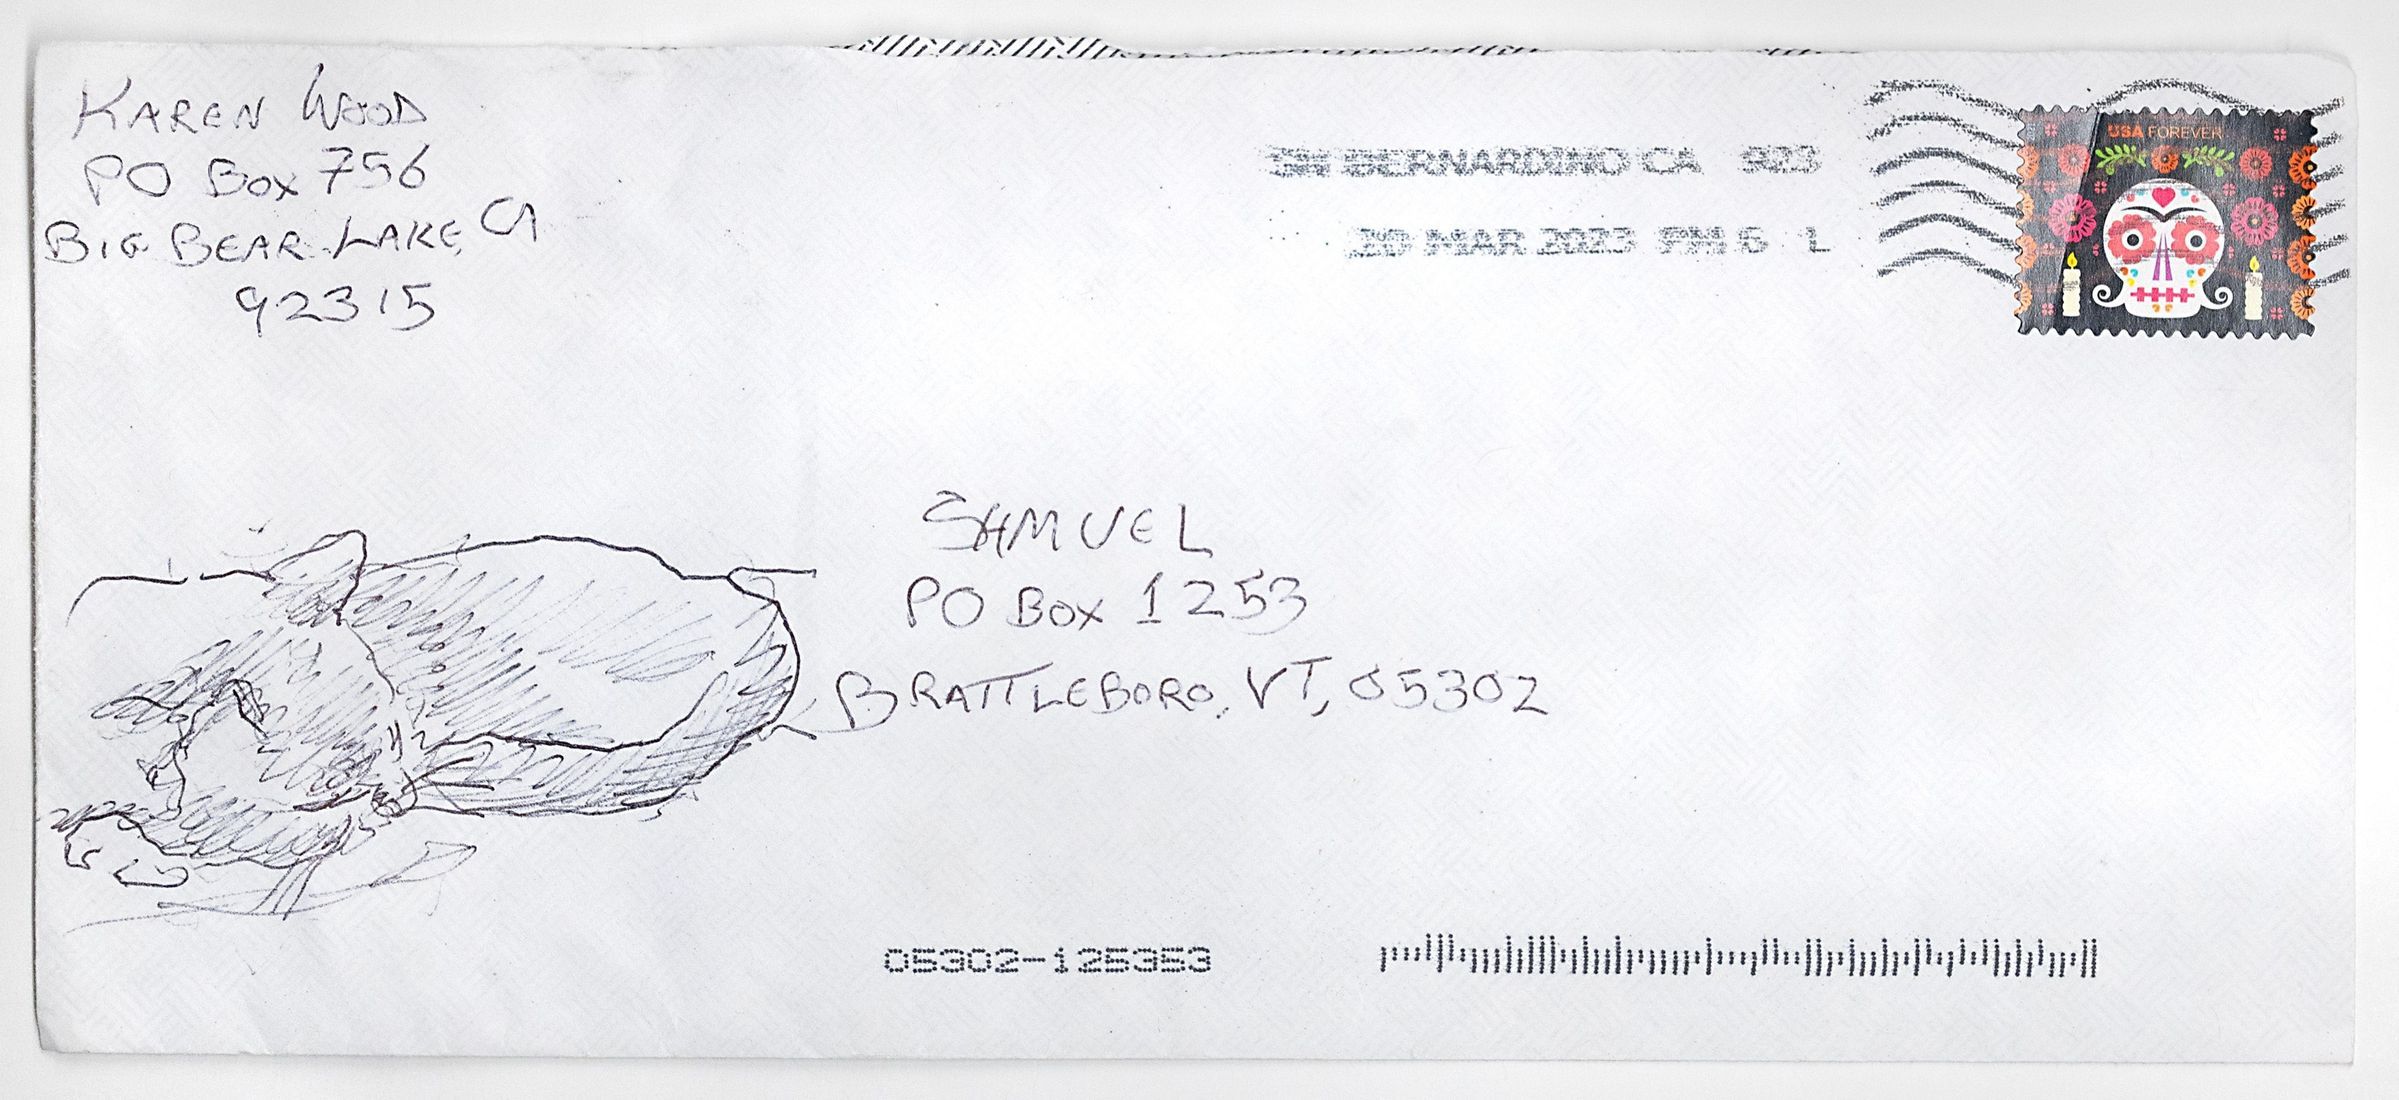 KAREN WOOD
PO BOX 756
BIG BEAR LAKE, CA
92315
SN BERNARDINO CA 923
20 MAR 2023 PM 6 L
USA FOREVER
SHMUEL
PO BOX 1253
BRATTLEBORO, VT, 05302
05302-125353